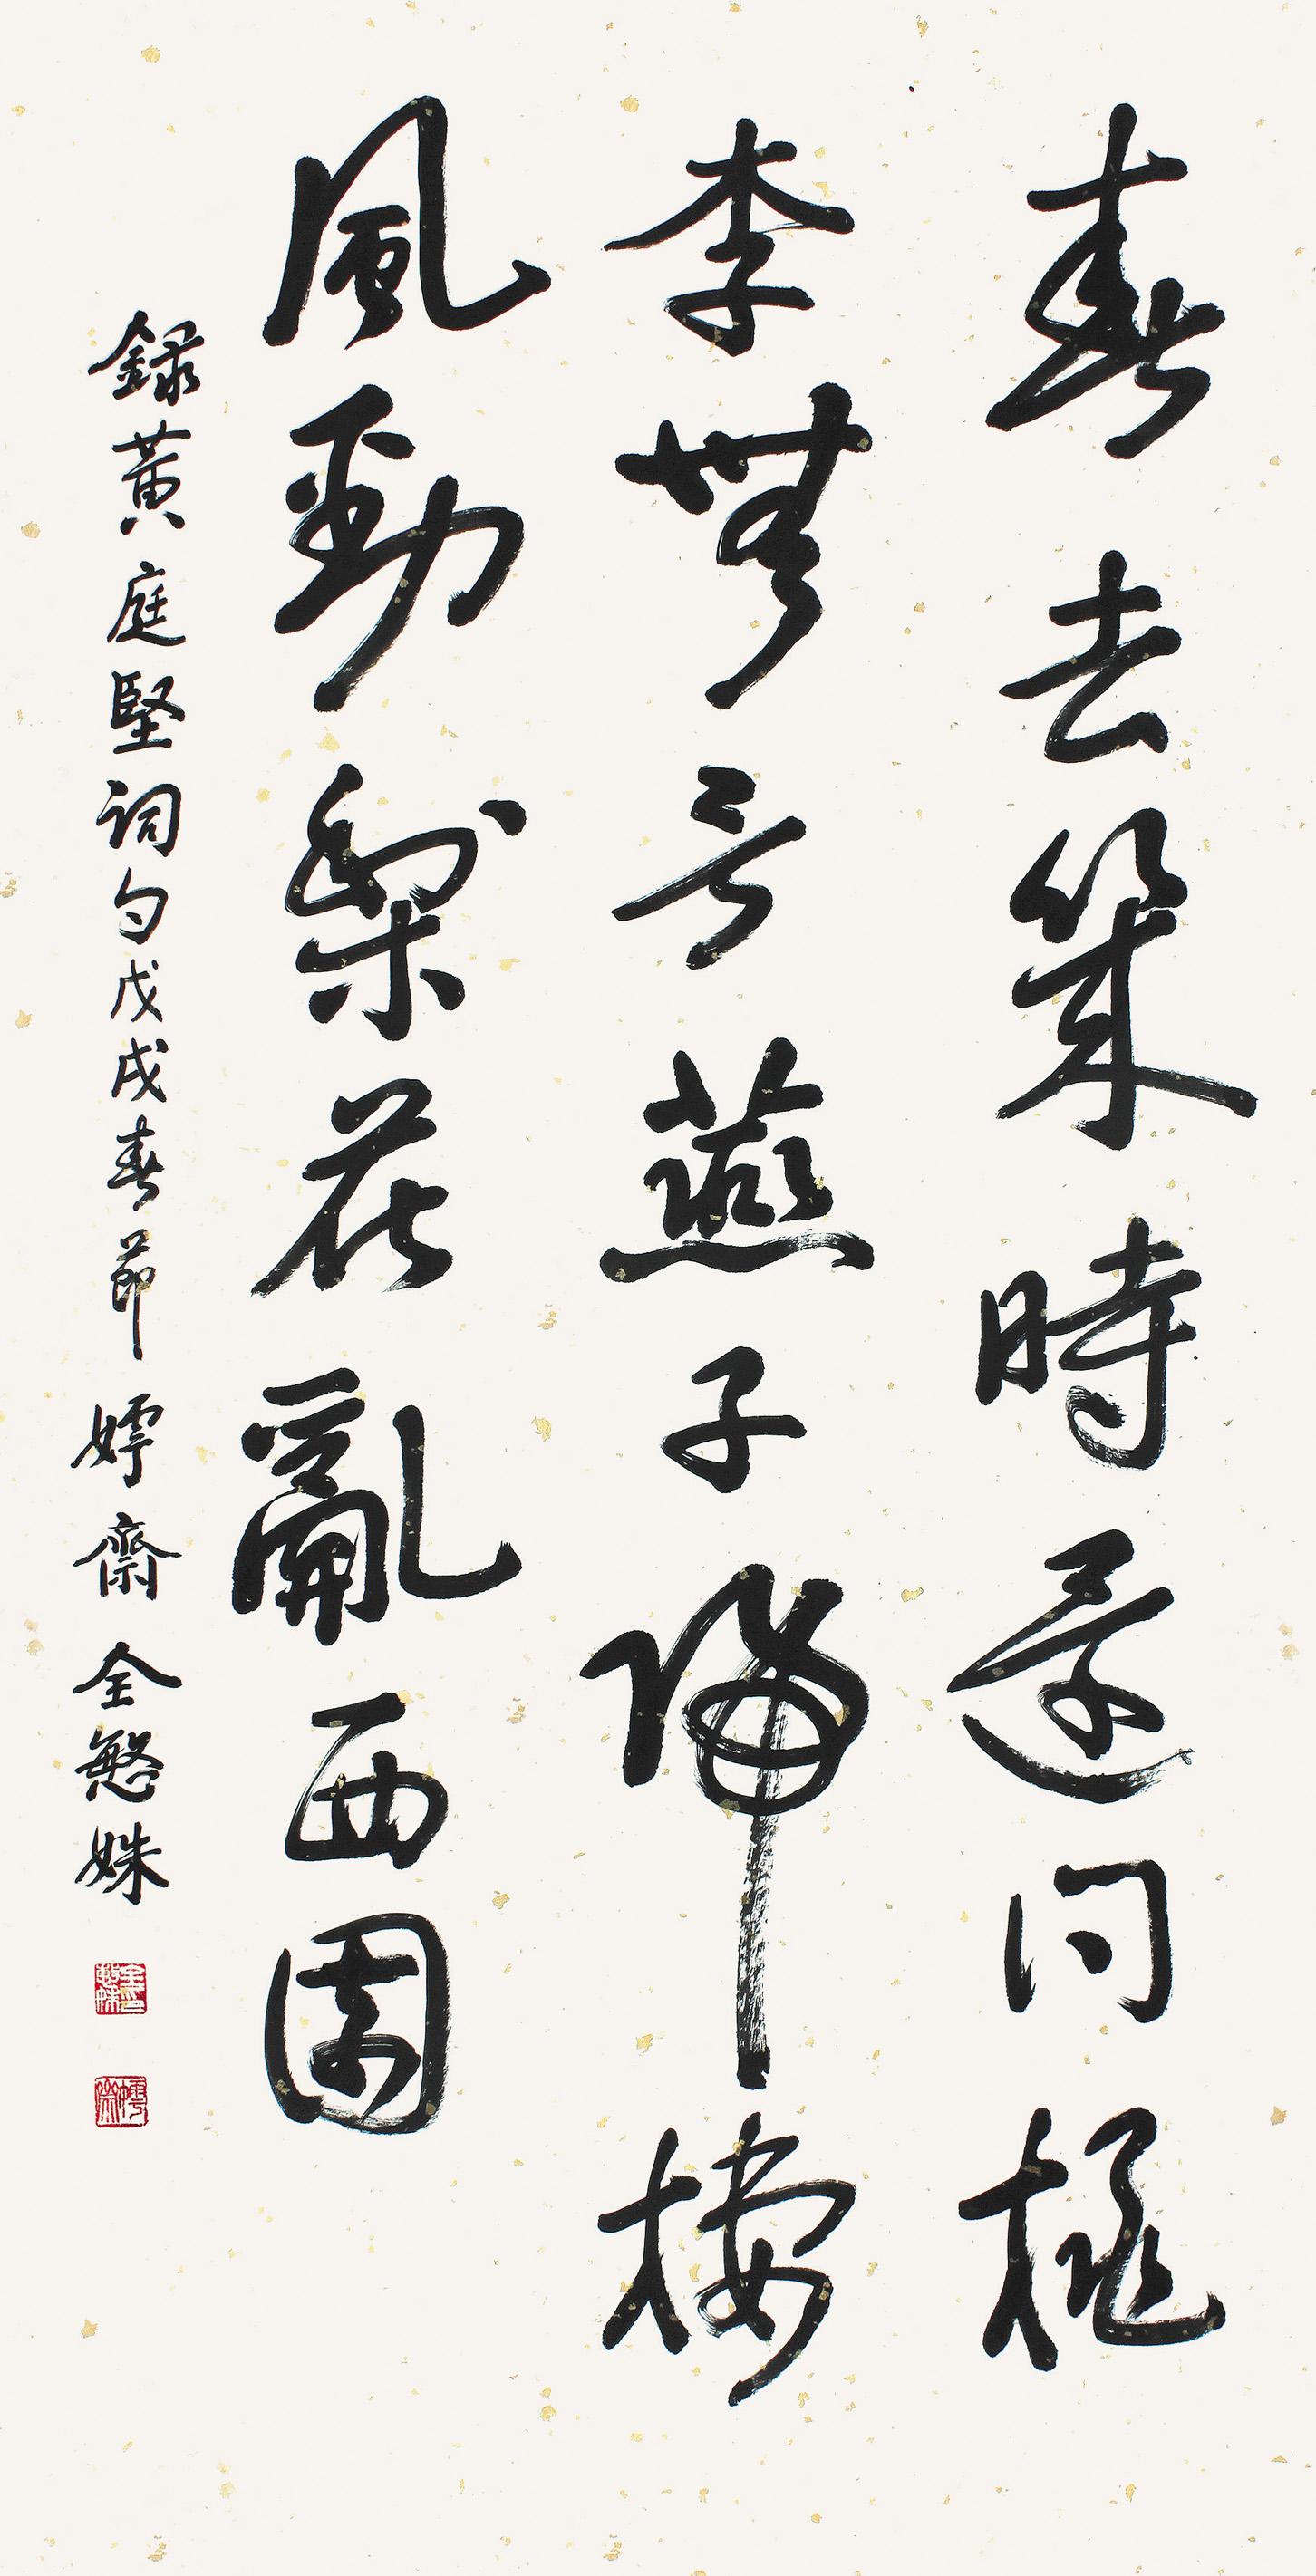 春去幾時還問桃
李無言燕子歸棲
風勁梨花亂西園
錄黃庭堅詞句戊戌春節 嫮齋 全慜姝